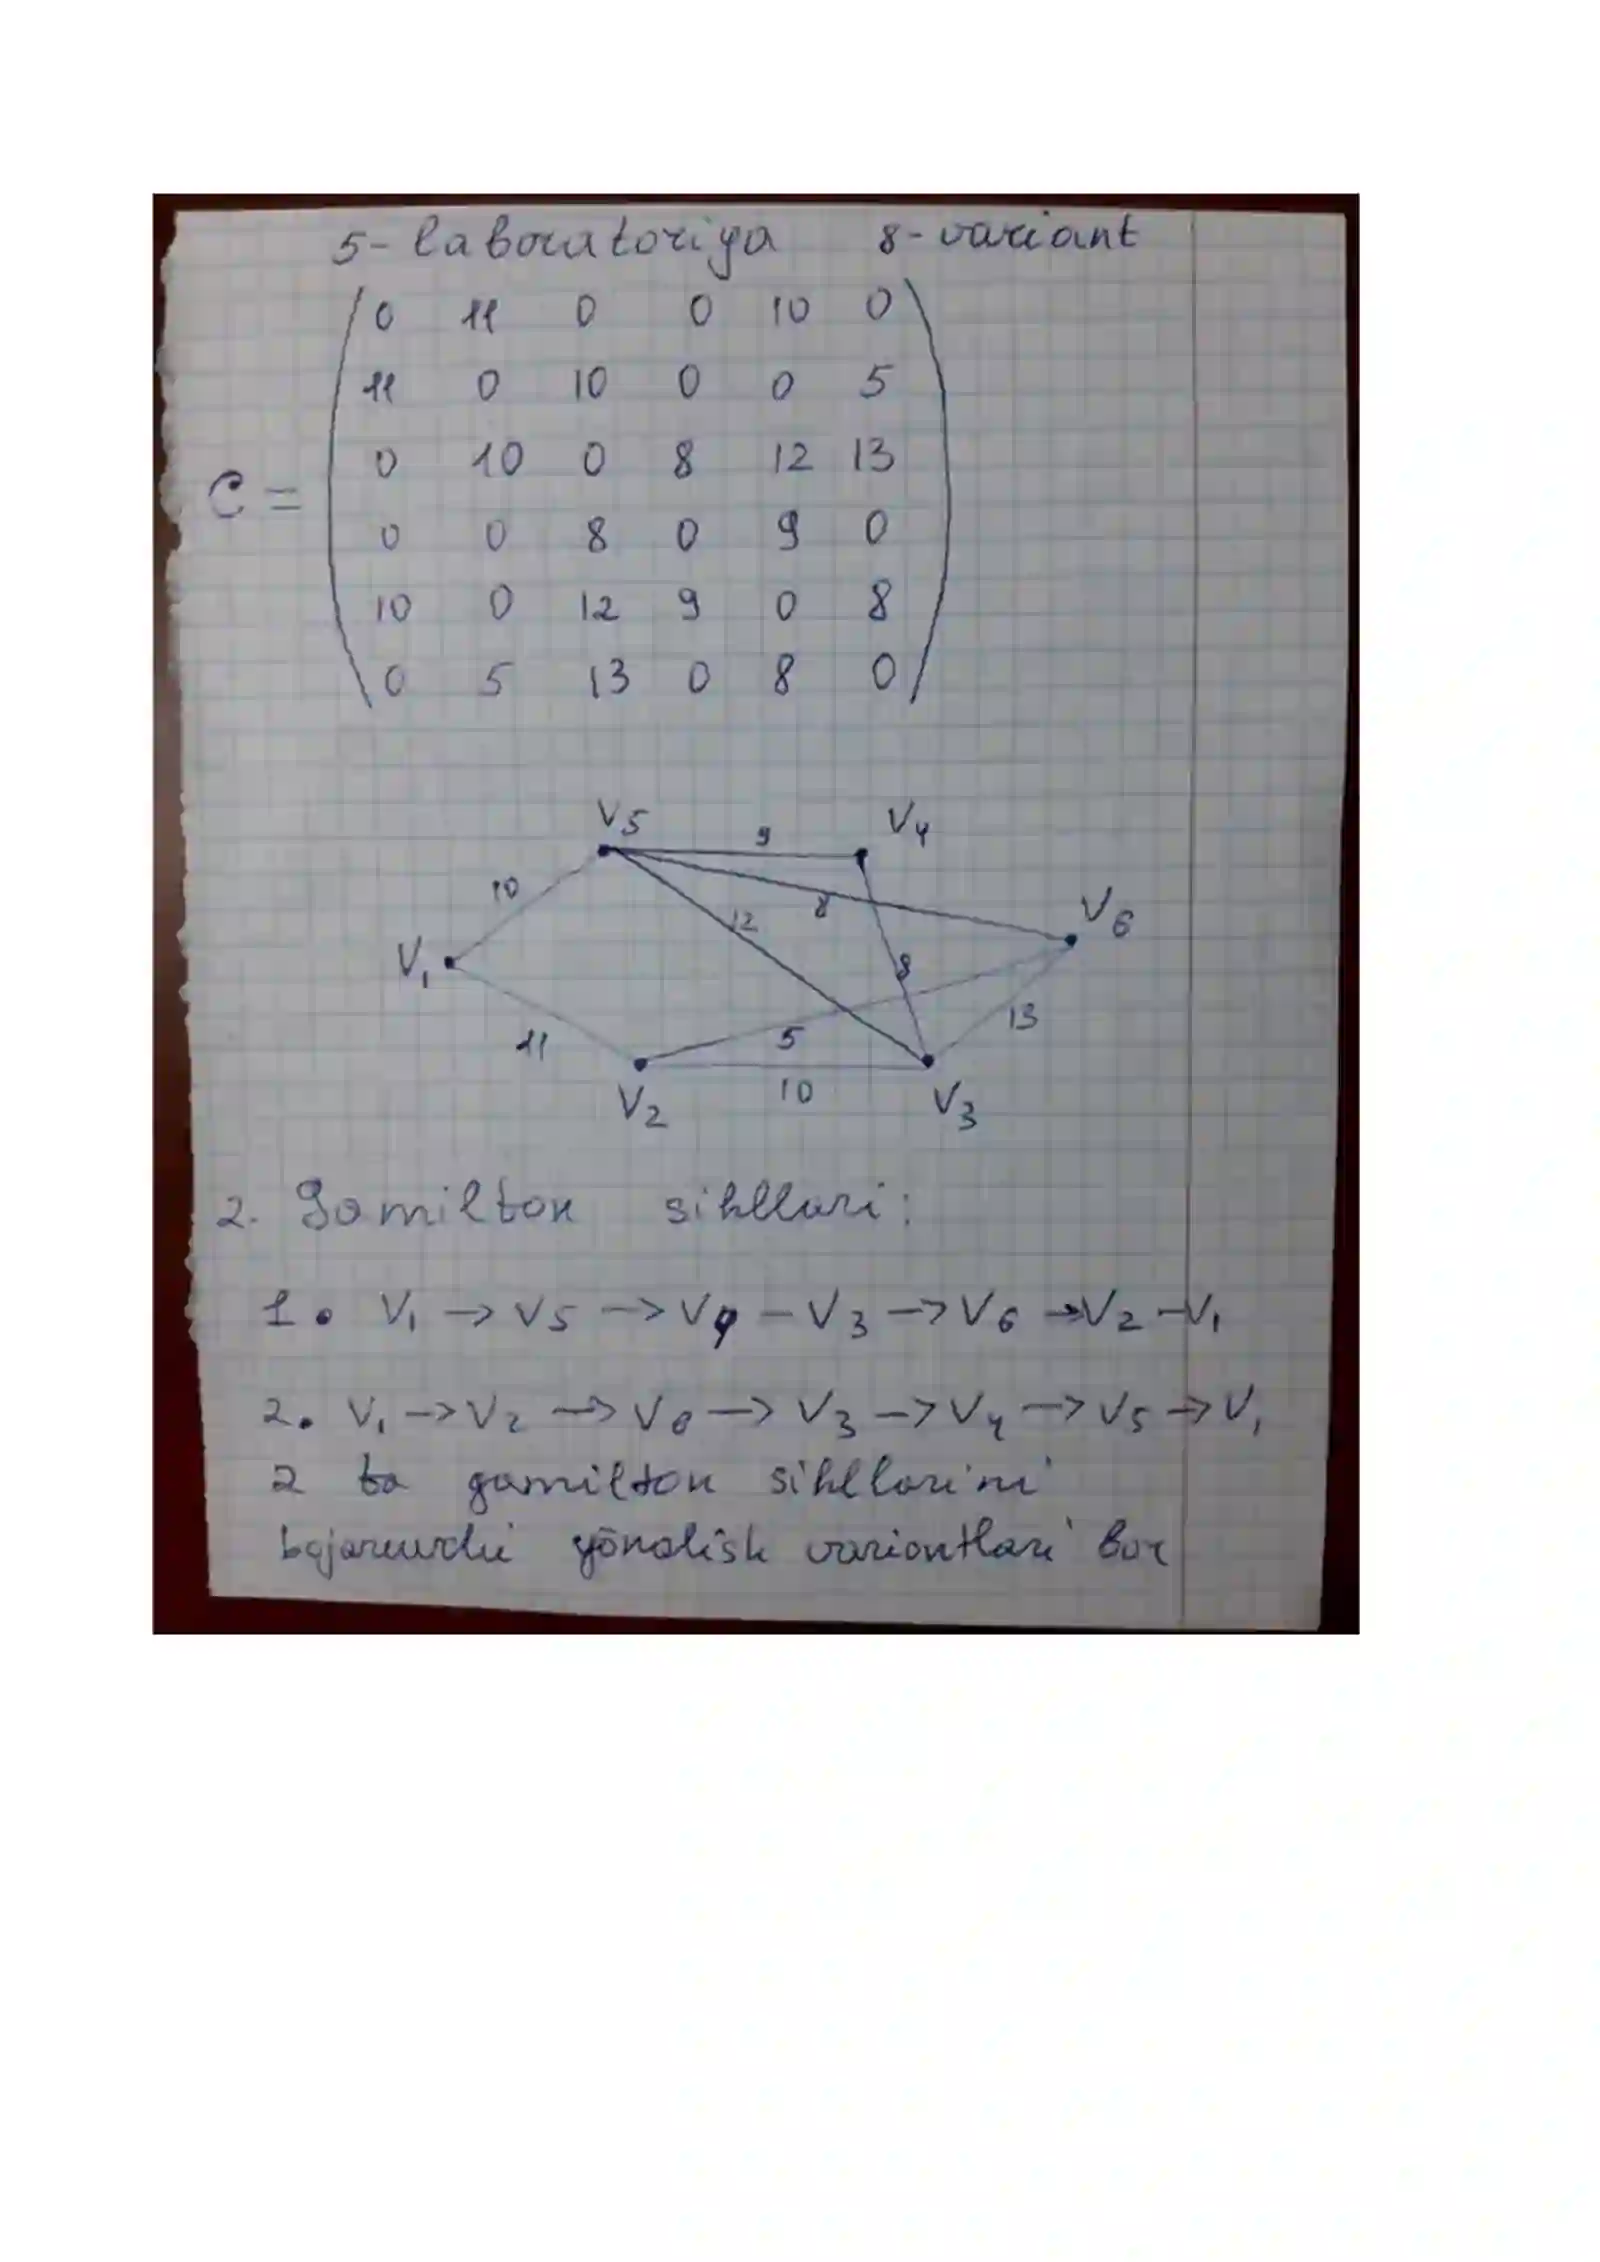 5- laboratoriya 8- variant
0 11 0 0 10 0
11 0 10 0 0 5
0 10 0 8 12 13
C =
0 0 8 0 9 0
10 0 12 9 0 8
0 5 13 0 8 0
V5 9 V4
10 8 V6
12
V1 8
13
11 5
V2 10 V3
2. Gamilton sikllari:
1. V1 → V5 → V4 – V3 → V6 → V2 – V1
2. V1 → V2 → V6 → V3 → V4 → V5 → V1
2 ta gamilton sikllarini
yōnalish variantlari bor